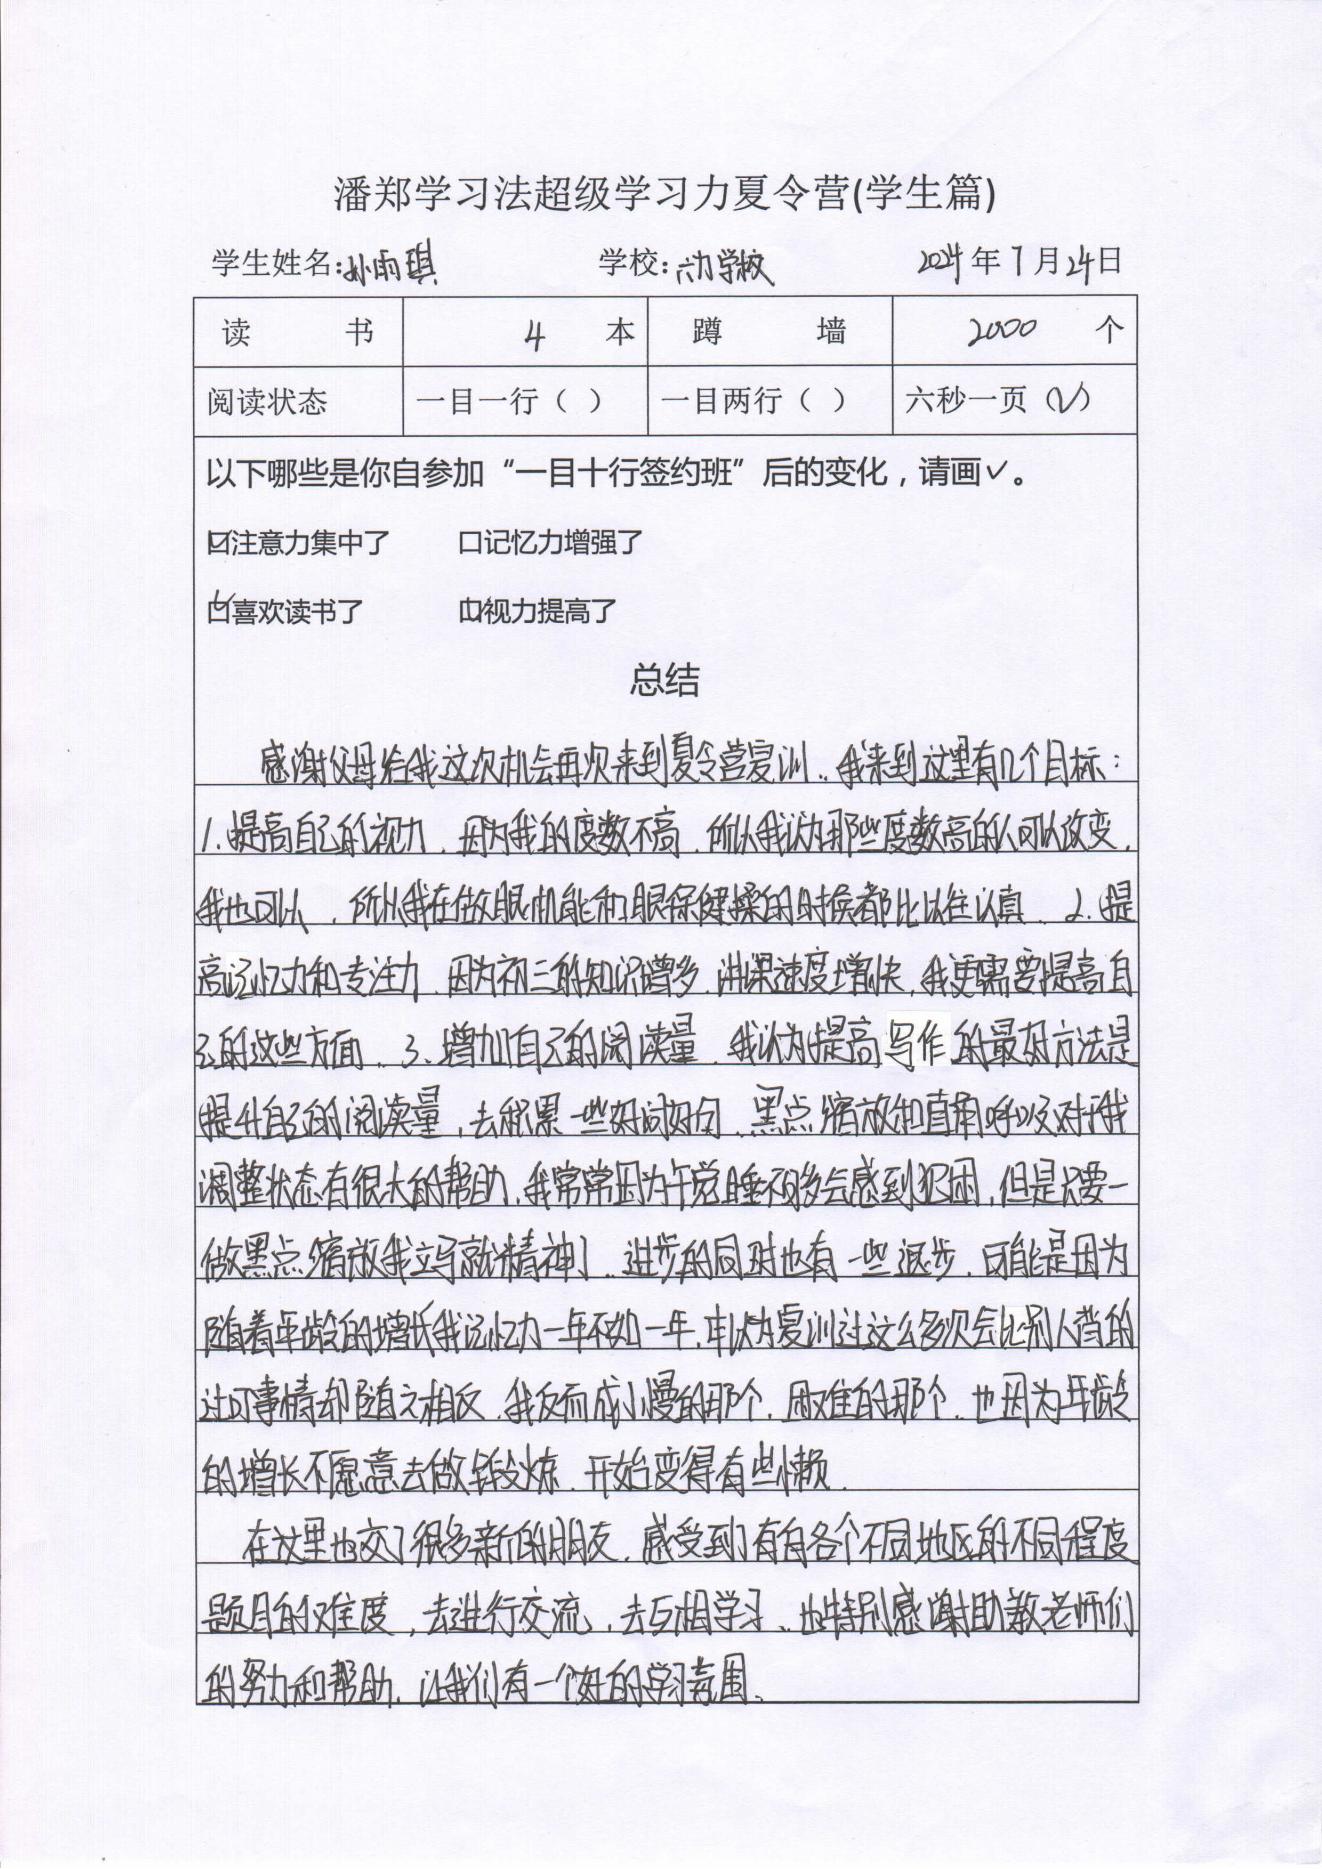 潘郑学习法超级学习力夏令营(学生篇)
学生姓名:孙雨琪 学校:六力学校 2024年7月24日
读 书 4 本 蹲 墙 2000 个
阅读状态 一目一行（ ） 一目两行（ ） 六秒一页（✓）
以下哪些是你自参加“一目十行签约班”后的变化，请画✓。
☑注意力集中了 口记忆力增强了
☑喜欢读书了 ☑视力提高了
总结
感谢父母给我这次机会再次来到夏令营复训。我来到这里有几个目标：
1.提高自己的视力.因为我的度数不高.所以我认为那些度数高的人可以改变.
我也可以.所以我在做眼机能和眼保健操的时候都比以往认真.2.提
高记忆力和专注力.因为初三的知识增多.讲课速度增快.我更需要提高自
己的这些方面.3、增加自己的阅读量.我认为提高写作的最好方法是
提升自己的阅读量,去积累一些好词好句.黑点缩放和直角呼以及对于我
调整状态有很大的帮助.我常常因为午觉睡不够多会感到犯困,但是只要一
做黑点缩放我立马就精神了.进步的同时也有一些退步.可能是因为
随着年龄的增长我记忆力一年不如一年.本以为复训过这么多次会比别人背的
过可事情却随之相反.我反而成了慢的那个.困难的那个.也因为年龄
的增长不愿意去做锻炼.开始变得有些懒.
在这里也交了很多新的朋友.感受到了有自各个不同地区的不同程度
题目的难度,去进行交流,去互相学习、也特别感谢助教老师们
的努力和帮助.让我们有一个好的学习范围.